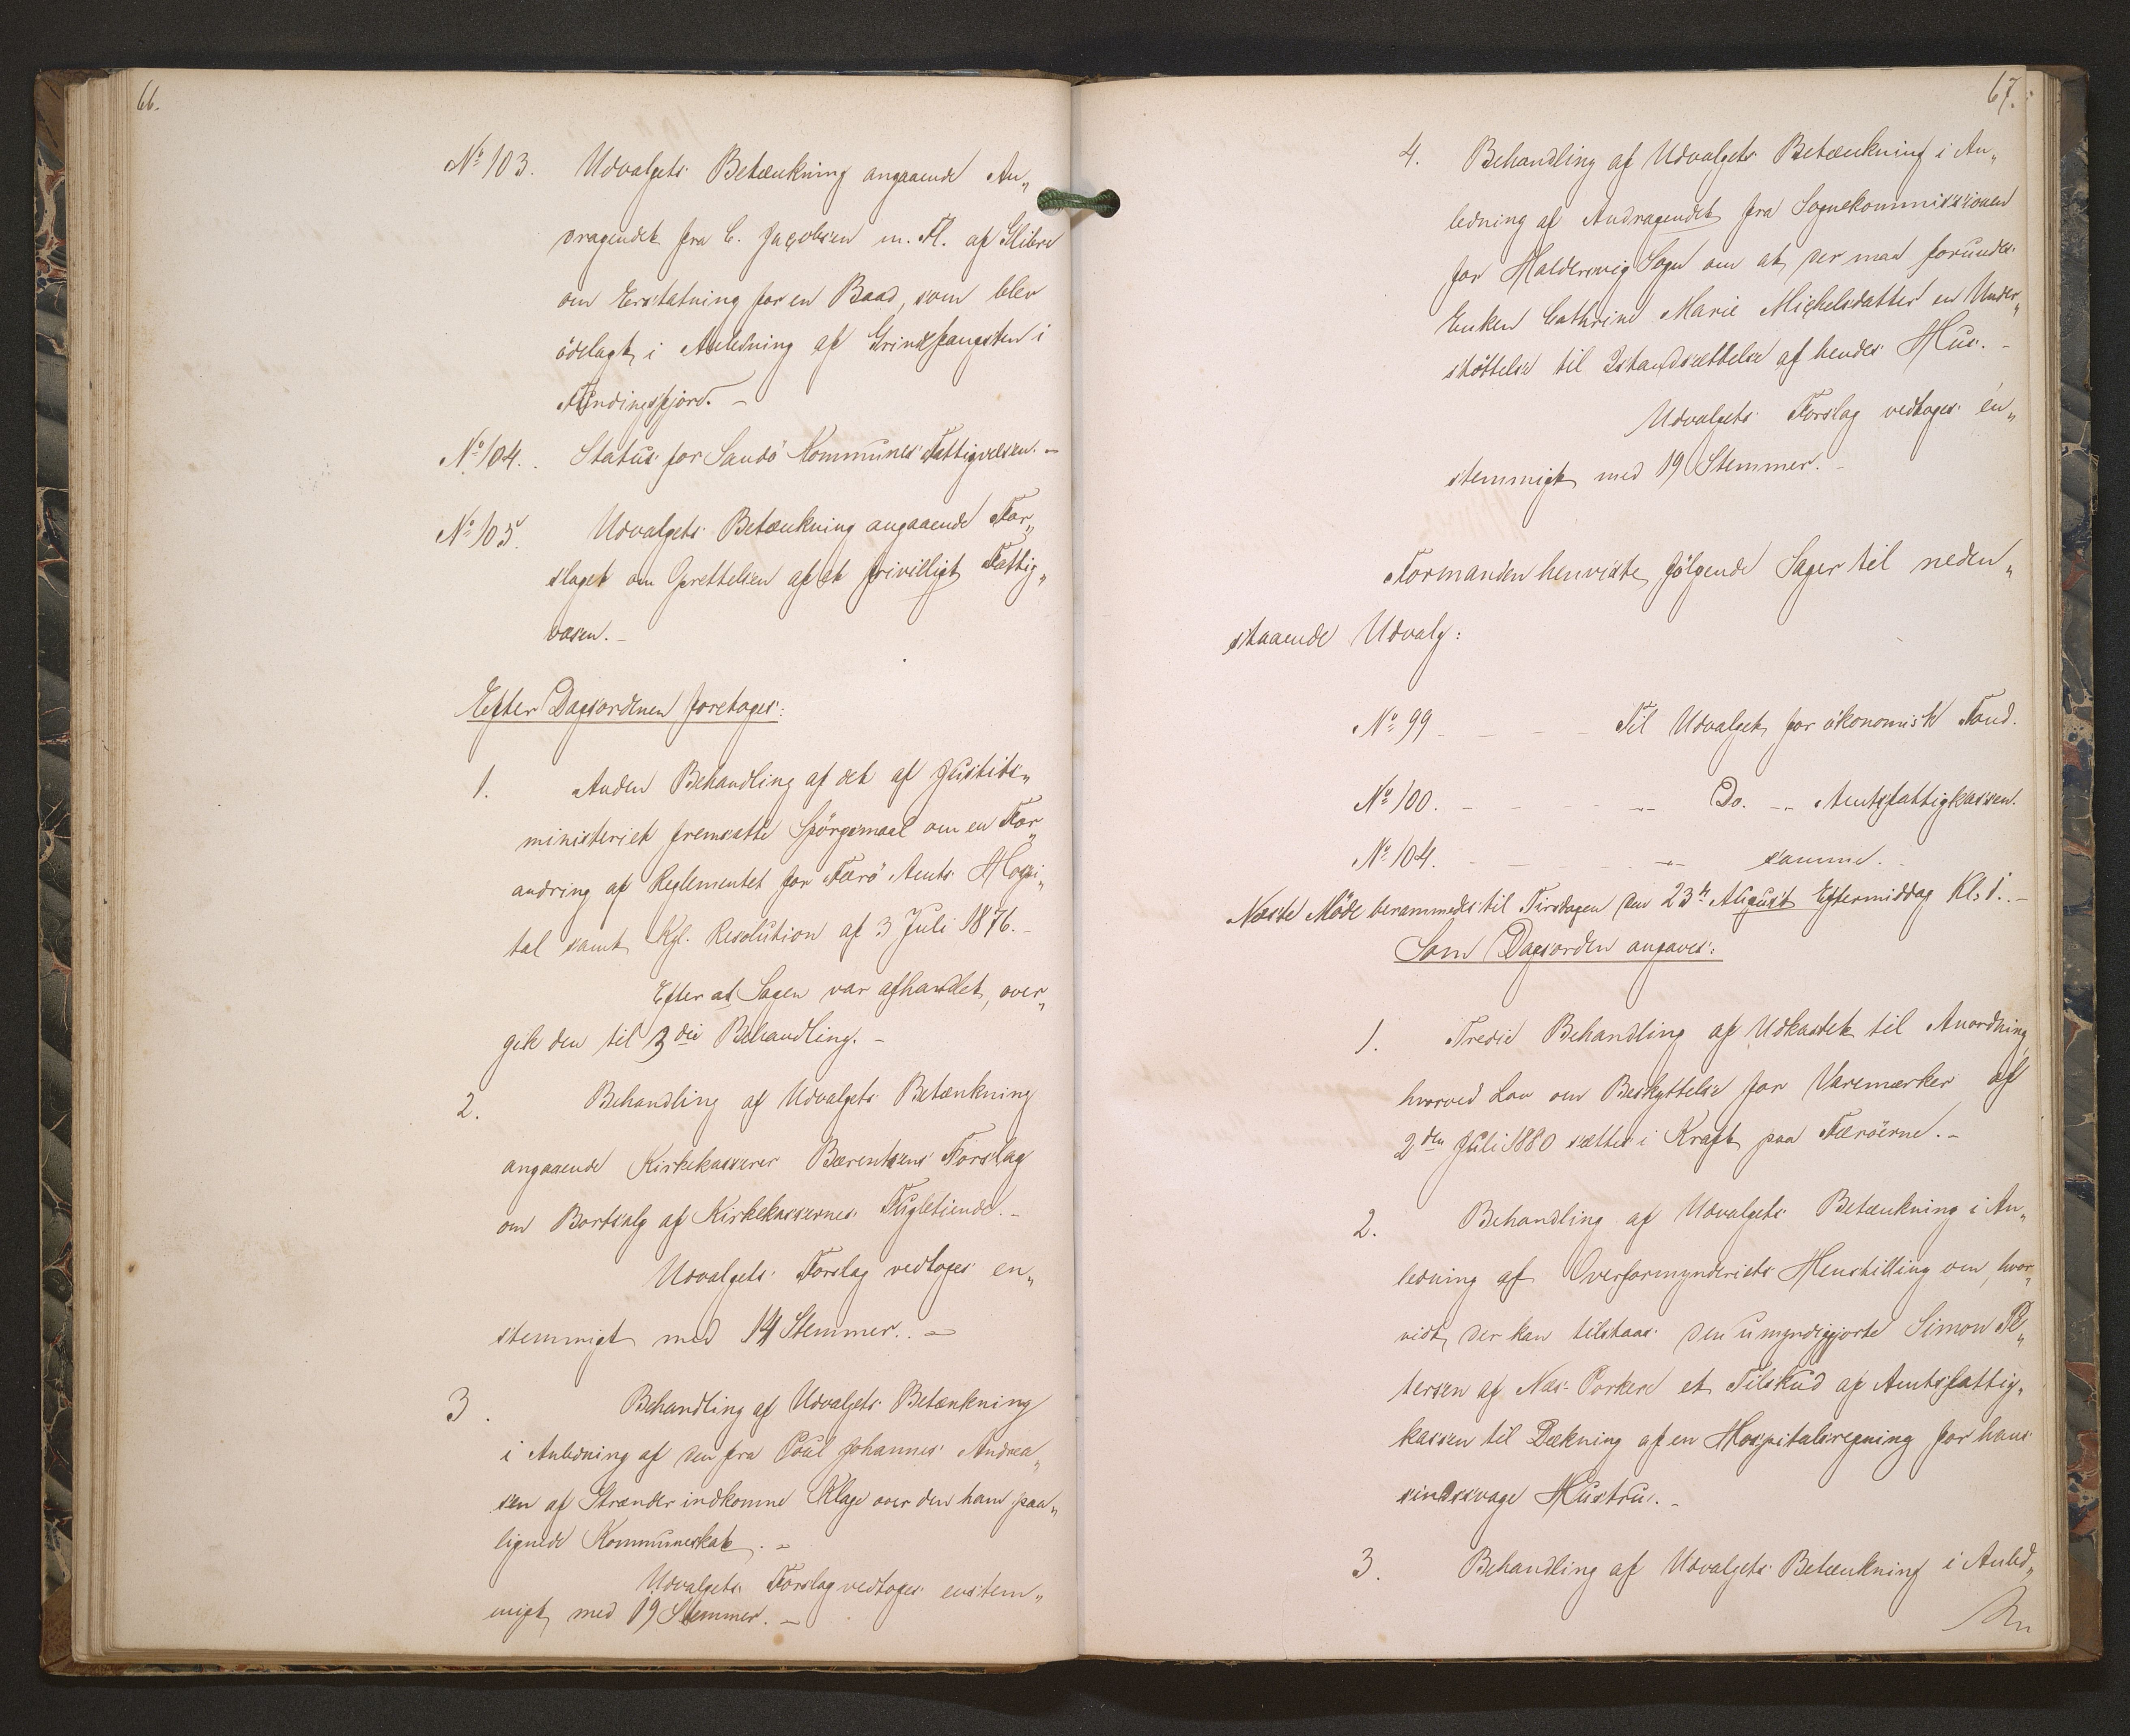 66.
No 103. Udvalgets Betænkning angaaende An„
dragendet fra C. Jacobsen m. Fl. af Glibre
om Erstatning for en Baad, som blev
ödelagt i Anledning af Grindefangsten i
Fundingsfjord. –
No 104. Status for Sandö Kommunes Fattigvæsen. –
No 105. Udvalgets Betænkning angaaende For„
slaget om Oprettelsen af et frivilligt Fattig„
væsen. –
Efter Dagsordenen foretoges:
1. Anden Behandling af det af Justits„
ministeriet fremsatte Spörgsmaal om en For„
andring af Reglementet for Færö Amts Hospi„
tal samt Kgl. Resolution af 3 Juli 1876. –
Efter at Sagen var afhandlet, over„
gik den til 3die Behandling. –
2. Behandling af Udvalgets Betænkning
angaaende Kirkekasserer Bærentsens Forslag
om Bortsalg af Kirkekassernes Fugletiende. –
Udvalgets Forslag vedtoges en„
stemmigt med 14 Stemmer. –
3. Behandling af Udvalgets Betænkning
i Anledning af den fra Poul Johannes Andrea„
sen af Strænder indkomne Klage over den ham paa„
lignede Kommuneskat. –
Udvalgets Forslag vedtoges enstem„
migt med 19 Stemmer. –
67.
4. Behandling af Udvalgets Betænkning i An„
ledning af Andragendet fra Sognekommissionen
for Haldersvig Sogn om at der maa forundes
Enken Cathrine Marie Michelsdatter en Under„
stöttelse til Istandsættelse af hendes Hus. –
Udvalgets Forslag vedtoges en„
stemmigt med 19 Stemmer. –
Formanden henviste fölgende Sager til neden„
staaende Udvalg:
No 99 – – – – Til Udvalget for ökonomisk Fond.
No 100. – – – – –„– Do. –„– Amtsfattigkassen.
No 104. – – – – –„– samme. –
Næste Möde berammedes til Tirsdagen den 23de August Eftermiddag Kl. 5. –
Som Dagsorden angaves:
1. Tredie Behandling af Udkastet til Anordning,
hvorved Lov om Beskyttelse for Varemærker af
2den Juli 1880 sættes i Kraft paa Færöerne. –
2. Behandling af Udvalgets Betænkning i An„
ledning af Overformynderiets Henstilling om, hvor„
vidt der kan tilstaas den umyndiggjorte Simon Pe„
tersen af Næs-Porkere et Tilskud af Amtsfattig„
kassen til Dækning af en Hospitalsregning for hans
sindssvage Hustru. –
3. Behandling af Udvalgets Betænkning i Anled„